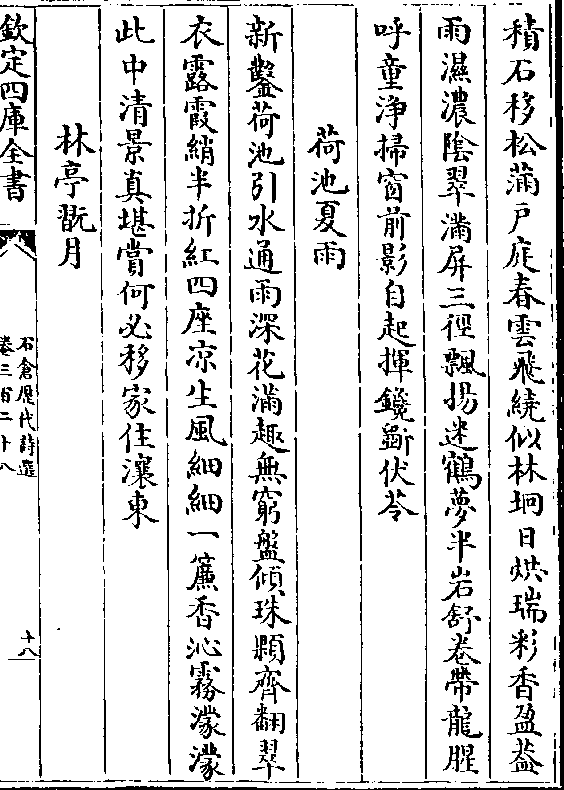 積石移松蒲戸庭春雲飛繞似林坰日烘瑞彩香盈葢
雨濕濃隂翠滿屏三徑飄揚迷鶴夢半岩舒巻帶龍腥
呼童淨掃窗前影自起揮鑱斸伏苓
荷池夏雨
新鑿荷池引水通雨深花滿趣無窮盤傾珠顆齊翻翠
衣露霞綃半折紅四座凉生風細細一簾香沁霧濛濛
此中清景真堪賞何必移家住瀼東
林亭翫月
欽定四庫全書
石倉歴代詩選
卷三百二十八
十八